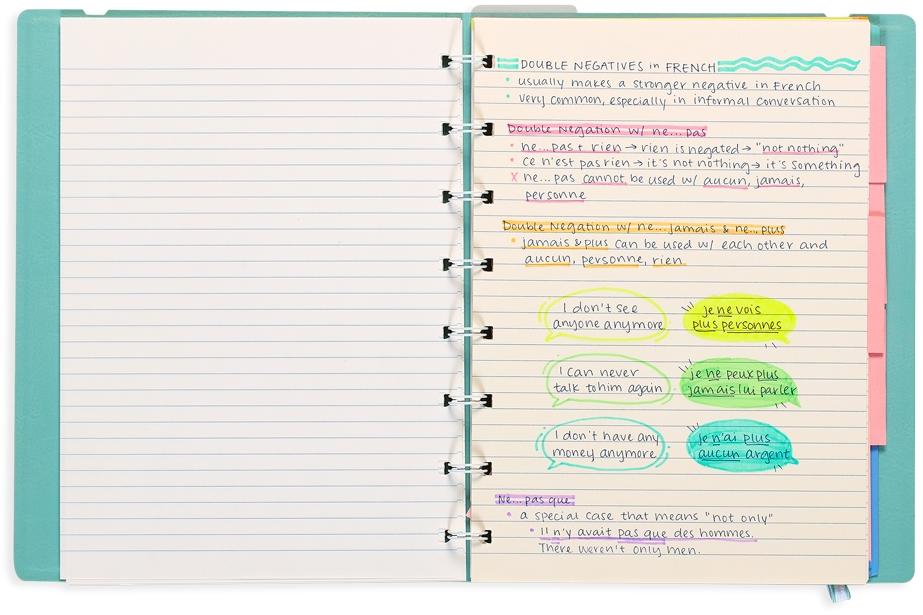 DOUBLE NEGATIVES in FRENCH
• usually makes a stronger negative in French
• very common, especially in informal conversation
Double Negation w/ ne...pas
• ne...pas + rien → rien is negated → "not nothing"
• ce n'est pas rien → it's not nothing → it's something
X ne...pas cannot be used w/ aucun, jamais,
personne
Double Negation w/ ne...jamais & ne...plus
• jamais & plus can be used w/ each other and
aucun, personne, rien.
I don't see
anyone anymore
je ne vois
plus personnes
I can never
talk to him again
je ne peux plus
jamais lui parler
I don't have any
money anymore
je n'ai plus
aucun argent
Ne...pas que
• a special case that means "not only"
• Il n'y avait pas que des hommes.
There weren't only men.